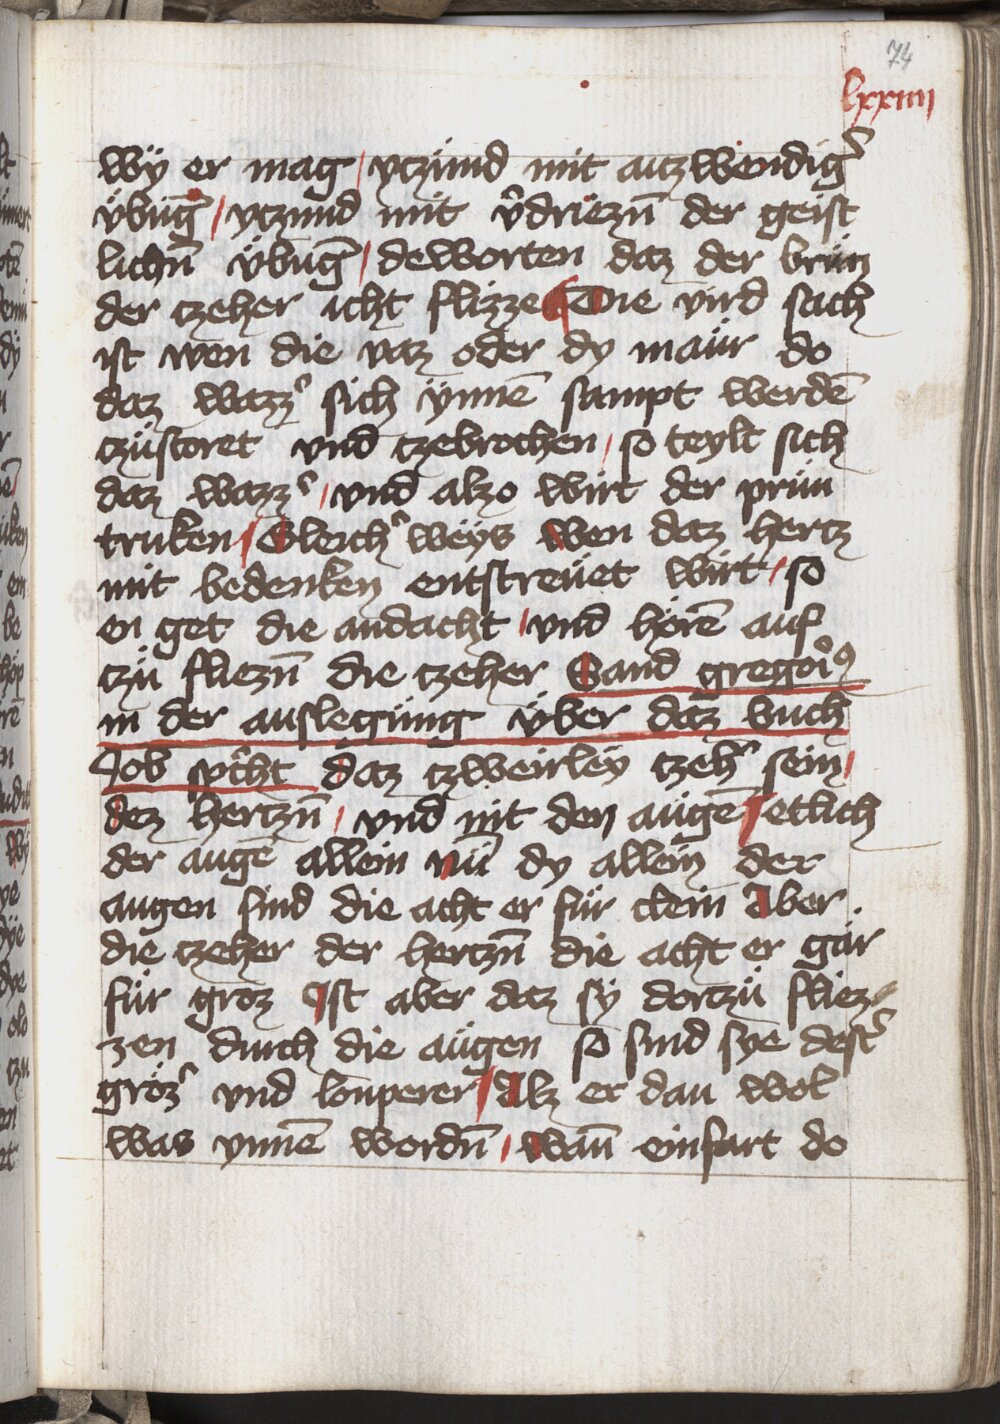 74
lxxiiii
wÿ er mag / ytzünd mit auzwendigʼ
ÿbūg / ytzund mit vʼdriezn̄ der geist
lichn̄ ÿbūg / deworten daz der brün
der czeher icht flizze Die vird sach
ist wen die vaz oder dy maür do
daz wazzʼ sich ÿnnē sampt werdē
czüstoret vnd czebrochen / so teylt sich
daz wazzʼ / vnd alzo wirt der prün
truken / Gleichʼ weÿs wen daz hertz
mit bedenken entstreüet wirt / so
en get die andacht / vnd hörē auf
czü fliezn̄ die czeher Sand gregoiʼꝰ
in der auslegüng ÿber daz buch
Job spʼcht daz czweirleÿ czehʼ sein /
dez hertzn̄ / vnd nit den augē / etlich
der augē allein nū dy allein der
augen sind die acht er für clein Aber
die czeher der hertzn̄ die acht er gar
für groz Ist aber daz sÿ dortzü fliez-
zen durch die aügen so sind sye destʼ
grözʼ vnd louperer / Alz er dau wol
was ynnē wordn̄ / wan̄ einfart do